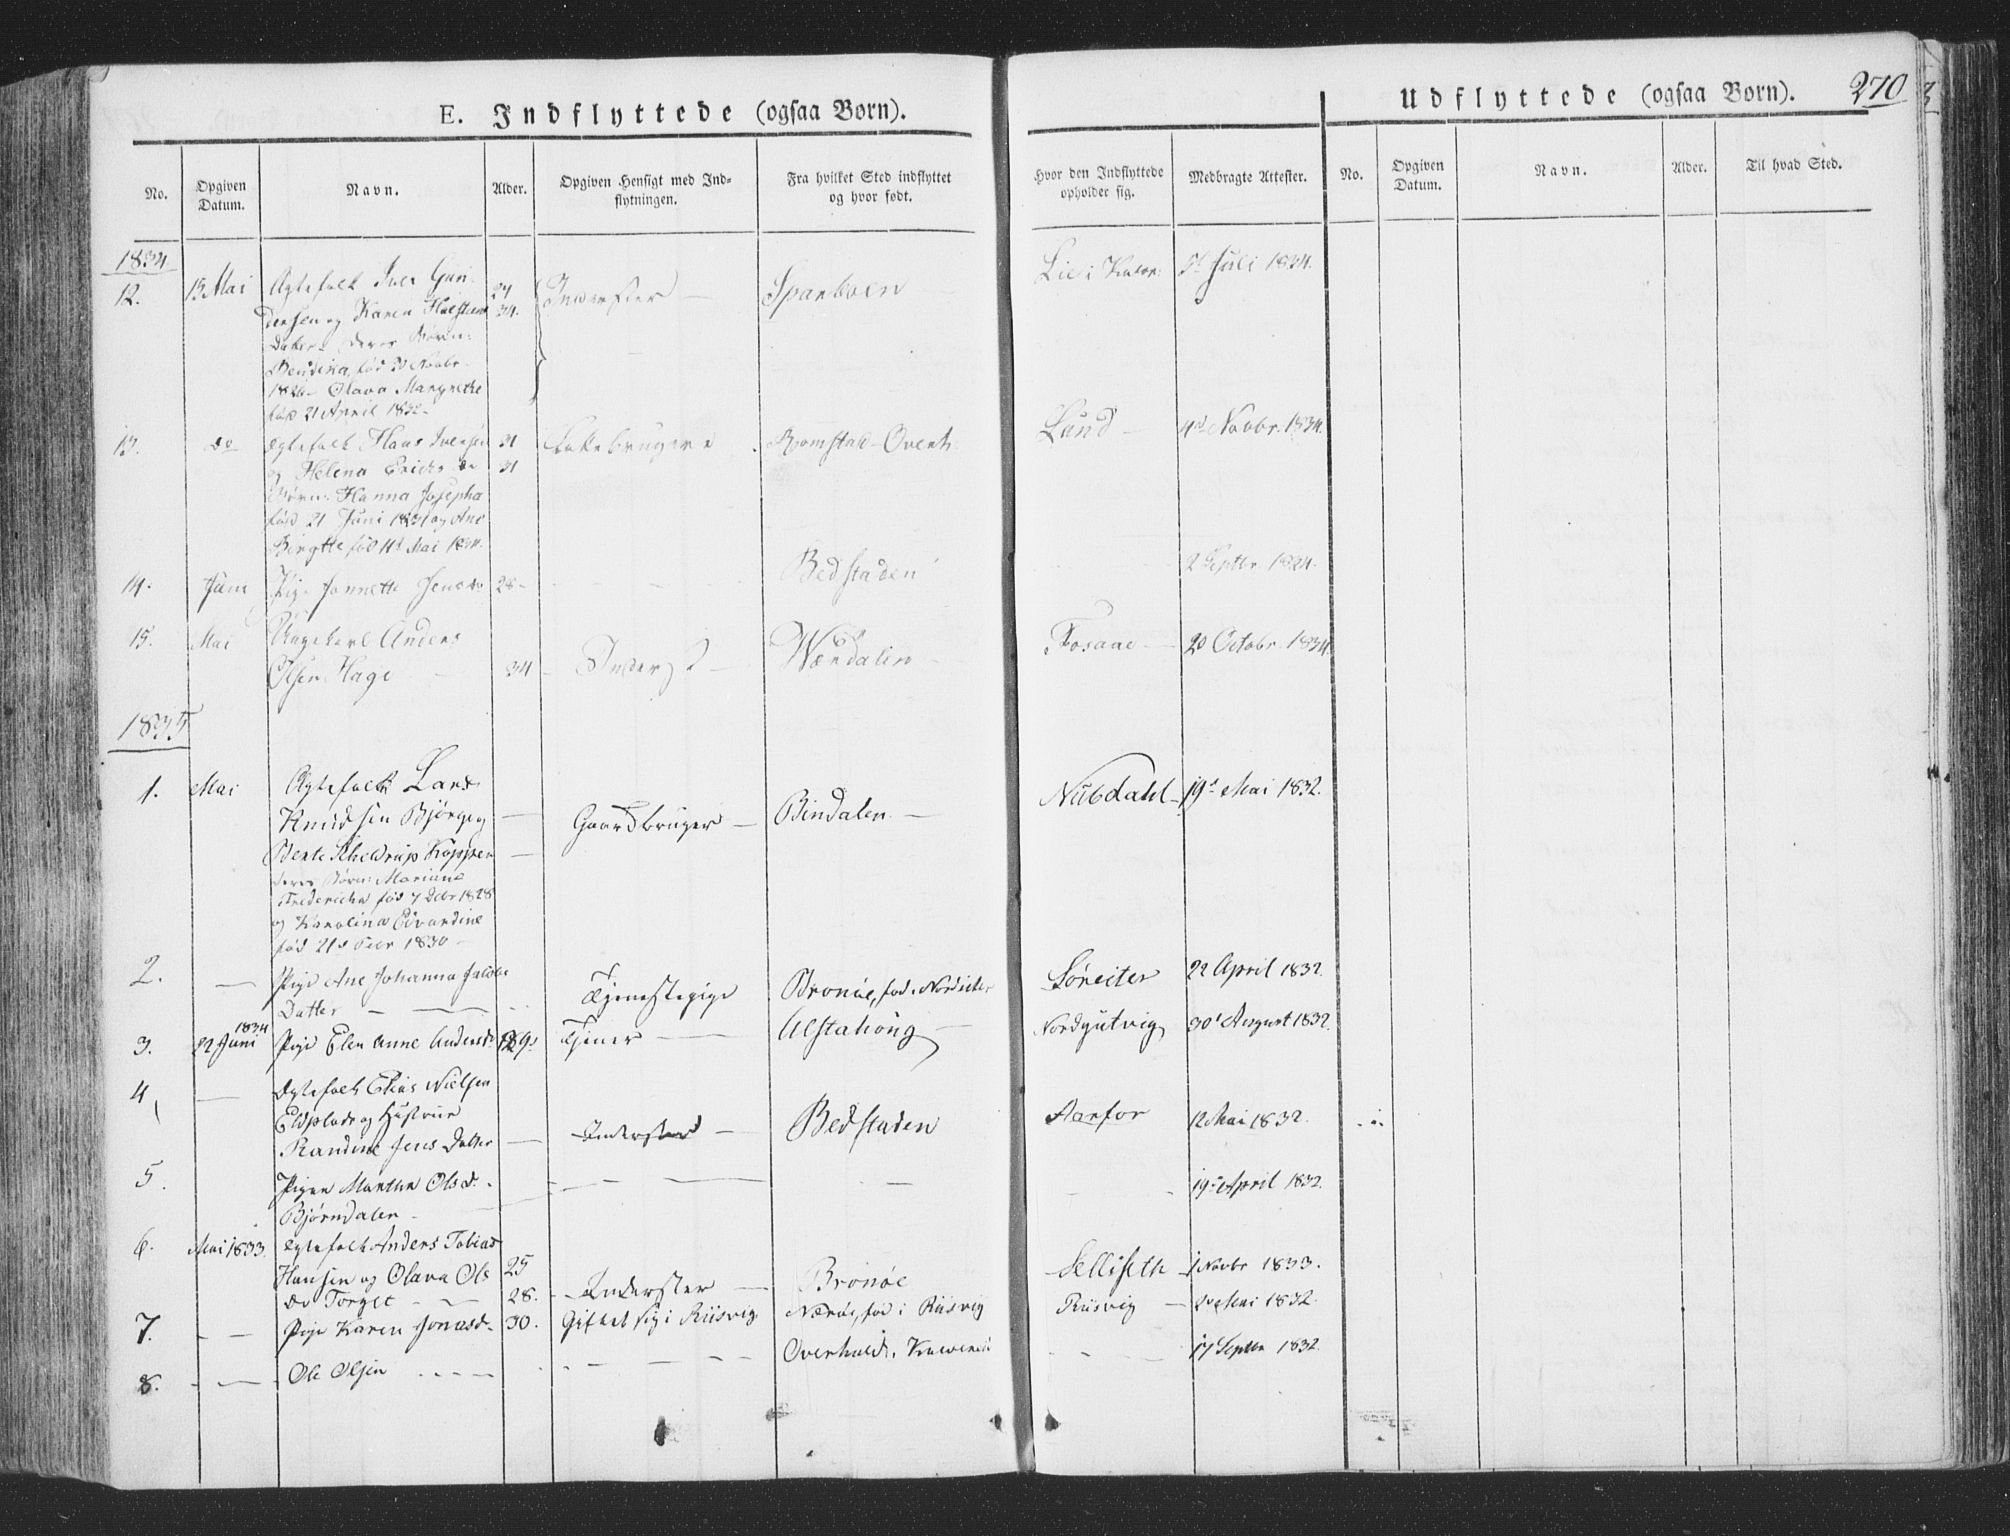 E. Indflyttede (ogsaa Børn).
Udflyttede (ogsaa Børn). 270
No.
Opgiven Datum.
Navn.
Alder.
Opgiven Hensigt med Ind-
flytningen.
Fra hvilket Sted indflyttet
og hvor født.
Hvor den Indflyttede
opholder sig.
Medbragte Attester.
No.
Opgiven Datum.
Navn.
Alder.
Til hvad Sted.
1834
12. 13 Mai Ægtefolk Iver Gun- 24 Inderster — Spanboen Lie i Juli 1834.
dersen og Karen 34.
Datter deres Børn:
født 20 Novbr.
1826 – Olava Margrethe
født 21 April 1832 –
13. do Ægtefolk Hans Iversen 31 Romstad Overh. Lund — 4de Novbr. 1834.
og Helena Erichs Dr 31
Børn: Hanna Josepha
født 21 Juni og Ane
Birgtte fød 11te Mai 1834.
14. Juni Pige Jonnetta Jensdr 28 – Bedstaden 2 Septbr. 1834.
15. Mai Ungekarl Anders
Olsen Hage 34 – Inderst — Værdalen – Fosaae — 20 Octobr. 1834.
1835
1. Mai Ægtefolk Lars Nubdahl – 19de Mai 1832.
Knudsen Bjørge og — Gaardbruger — Bindalen —
Bente Scheldrup Koppen —
deres Børn: Mariane
Fredericha fød 7 Debr 1828
og Karolina Edvardine
fød 21de Febr 1830 –
2. — Pige Ane Johanna Jakobs
Datter — — Tjenestepige Brønøe, fød i Søreiter 22 April 1832.
3. 1834 22 Juni Pige Elen Anne Andersdr Tjener — Alstahoug — Nordgutvig 30te August 1832.
4 — Ægtefolk Elias Nielsen
og Hustrue
Randine Jens Datter — Inderster — Bedstaden Aarfor 12 Mai 1832.
5. Pigen Marthea Olsd. — — — 19de April 1832.
Bjørndalen –
6. Mai 1833. Ægtefolk Anders Tobias
Hansen og Olava Ols 25 Selliseth – 1 Novbr 1833.
Dr Torget – — 28. – Inderster — Brønøe
7. — Pige Karen Jonasd. 30. Giftet sig i Riisvig Nærøe, fød i Riisvig Riisvig — Mai 1832.
8. – — Ole Olsen Overhald, 17 Septbr 1832.